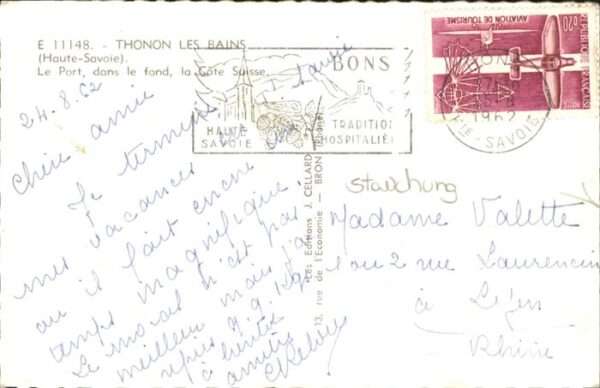 E 11148. - THONON LES BAINS
(Haute-Savoie).
Le Port, dans le fond, la Côte Suisse.
24.8.62
en Savoie
Chère amie
Je termine
mes vacances
où il fait encore un
temps magnifique.
Le moral n'est pas
meilleur mais j'ai
repris
à bientôt
amitiés
BONS
HAUTE
SAVOIE
TRADITION
HOSPITALIÈRE
AVIATION DE TOURISME
0,20
REPUBLIQUE FRANÇAISE
1962
HTE-SAVOIE
Editions J. CELLARD
13, rue de l'Economie - BRON
Madame Valette
1 ou 2 rue Laurencin
à Lyon
Rhône